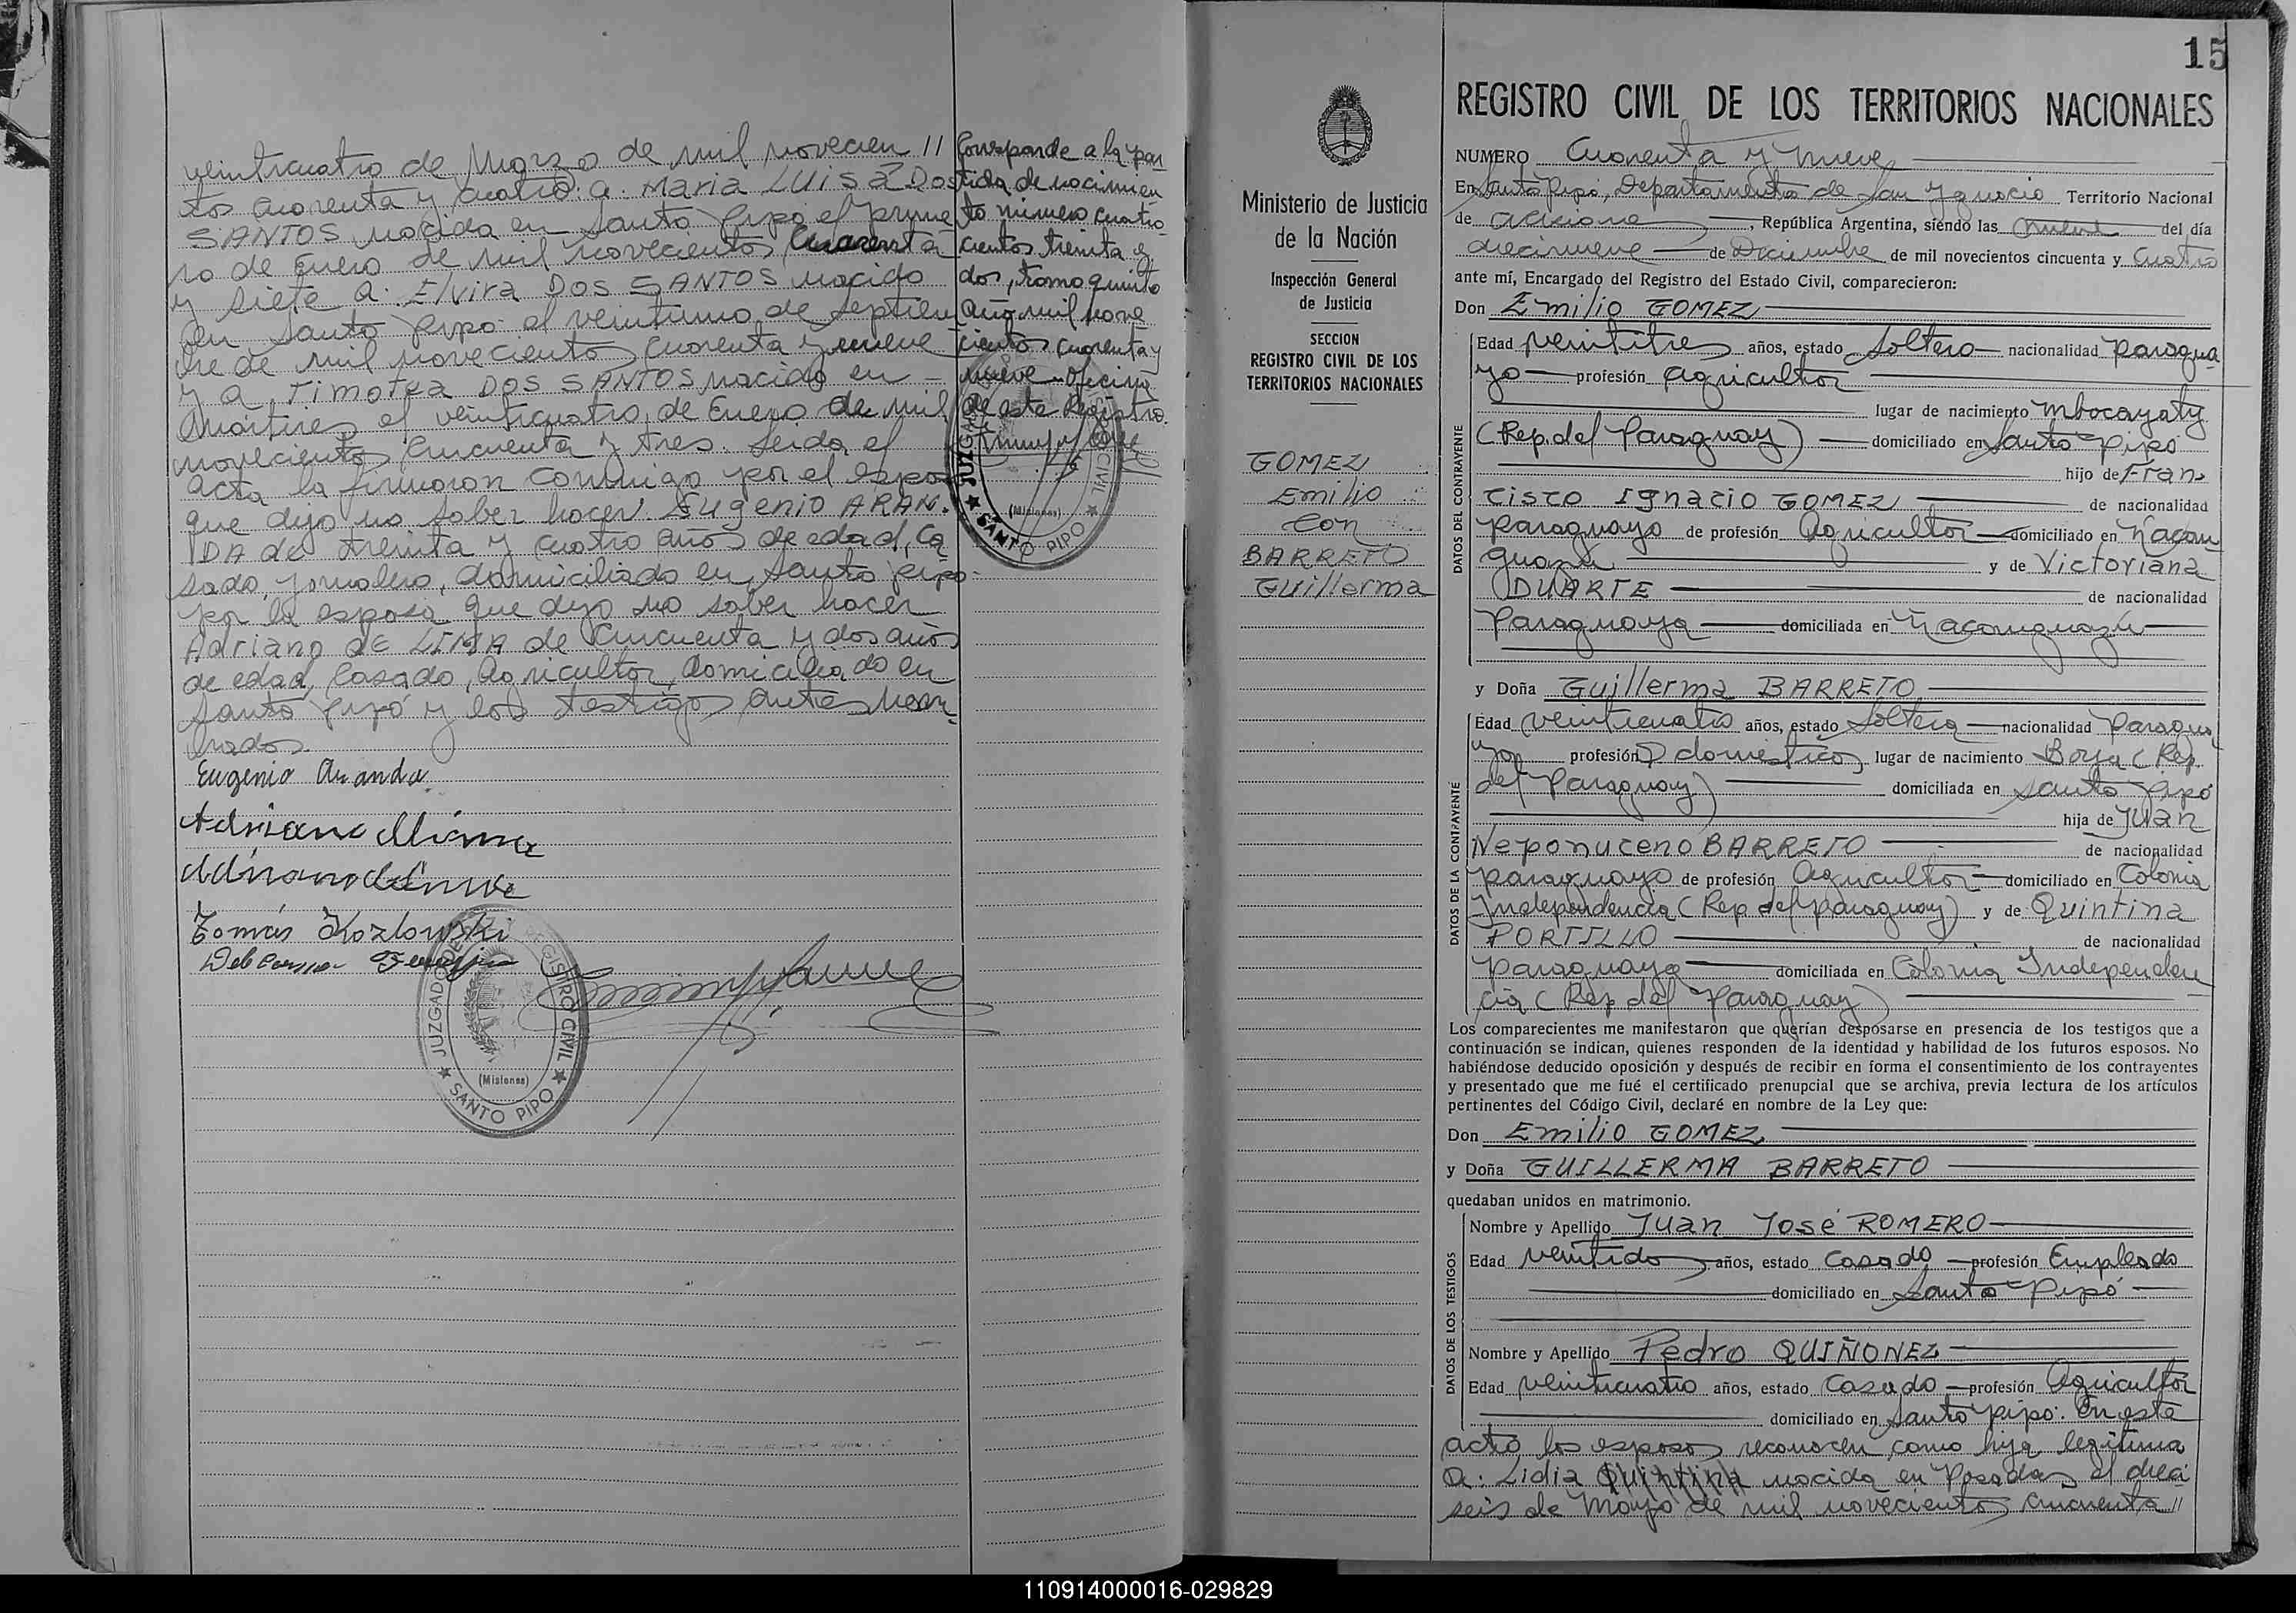 veinticuatro de Marzo de mil novecien //
tos cuarenta y cuatro: a. Maria LUISA DOS
SANTOS nacida en Santo Pipó el prime
ro de Enero de mil novecientos cuarenta
y siete a: Elvira DOS SANTOS nacido
en Santo Pipó el veintiuno de Septiem
bre de mil novecientos cuarenta y nueve
y a Timotea DOS SANTOS nacida en
Mártires el veinticuatro de Enero de mil
novecientos cincuenta y tres. Leida el
acta la firmaron conmigo por el espo
que dijo no saber hacer Eugenio ARAN-
DA de treinta y cuatro años de edad, ca
sado, jornalero, domiciliado en Santo Pipó
por la esposa que dijo no saber hacer
Adriano de LIMA de cincuenta y dos años
de edad, casado, agricultor, domiciliado en
Santo Pipó y los testigos antes nom-
brados
Eugenio Aranda
Tomás Kozlowski
JUZGADO DE
REGISTRO CIVIL
(Misiones)
SANTO PIPO
Corresponde a la par
tida de nacimien
to número cuatro
cientos treinta y
dos, tomo quinto
año mil nove
cientos cuarenta y
nueve. Oficina
de este Registro.
JUZGADO
CIVIL
(Misiones)
SANTO PIPO
15
Ministerio de Justicia
de la Nación
Inspección General
de Justicia
SECCION
REGISTRO CIVIL DE LOS
TERRITORIOS NACIONALES
GOMEZ
Emilio
Con
BARRETO
Guillerma
REGISTRO CIVIL DE LOS TERRITORIOS NACIONALES
NUMERO Cuarenta y nueve
En Santo Pipó, Departamento de San Ygnacio Territorio Nacional
de Misiones, República Argentina, siendo las nueve del día
diecinueve de Diciembre de mil novecientos cincuenta y cuatro
ante mí, Encargado del Registro del Estado Civil, comparecieron:
Don Emilio GOMEZ
DATOS DEL CONTRAYENTE
Edad veintitres años, estado Soltero nacionalidad paragua
yo profesión agricultor
lugar de nacimiento Mbocayaty
(Rep. del Paraguay) domiciliado en Santo Pipó
hijo de Fran
cisco Ignacio GOMEZ de nacionalidad
paraguayo de profesión Agricultor domiciliado en Ñacan
guazú y de Victoriana
DUARTE de nacionalidad
Paraguaya domiciliada en Ñacanguazú
y Doña Guillerma BARRETO
DATOS DE LA CONTRAYENTE
Edad veinticuatro años, estado Soltera nacionalidad Paragua
ya profesión Q domesticos lugar de nacimiento Borja (Rep
del Paraguay) domiciliada en Santo Pipó
hija de Juan
Neponuceno BARRETO de nacionalidad
paraguayo de profesión Agricultor domiciliado en Colonia
Independencia (Rep. del Paraguay) y de Quintina
PORTILLO de nacionalidad
paraguaya domiciliada en Colonia Independen
cia (Rep del Paraguay)
Los comparecientes me manifestaron que querían desposarse en presencia de los testigos que a
continuación se indican, quienes responden de la identidad y habilidad de los futuros esposos. No
habiéndose deducido oposición y después de recibir en forma el consentimiento de los contrayentes
y presentado que me fué el certificado prenupcial que se archiva, previa lectura de los artículos
pertinentes del Código Civil, declaré en nombre de la Ley que:
Don Emilio GOMEZ
y Doña GUILLERMA BARRETO
quedaban unidos en matrimonio.
DATOS DE LOS TESTIGOS
Nombre y Apellido Juan José ROMERO
Edad veintidos años, estado Casado profesión Empleado
domiciliado en Santo Pipó
Nombre y Apellido Pedro QUIÑONEZ
Edad veinticuatro años, estado Casado profesión Agricultor
domiciliado en Santo Pipó. En este
acto los esposos reconocen como hija legítima
a: Lidia Quintina nacida en Posadas el dieci
seis de Mayo de mil novecientos cincuenta //
110914000016-029829